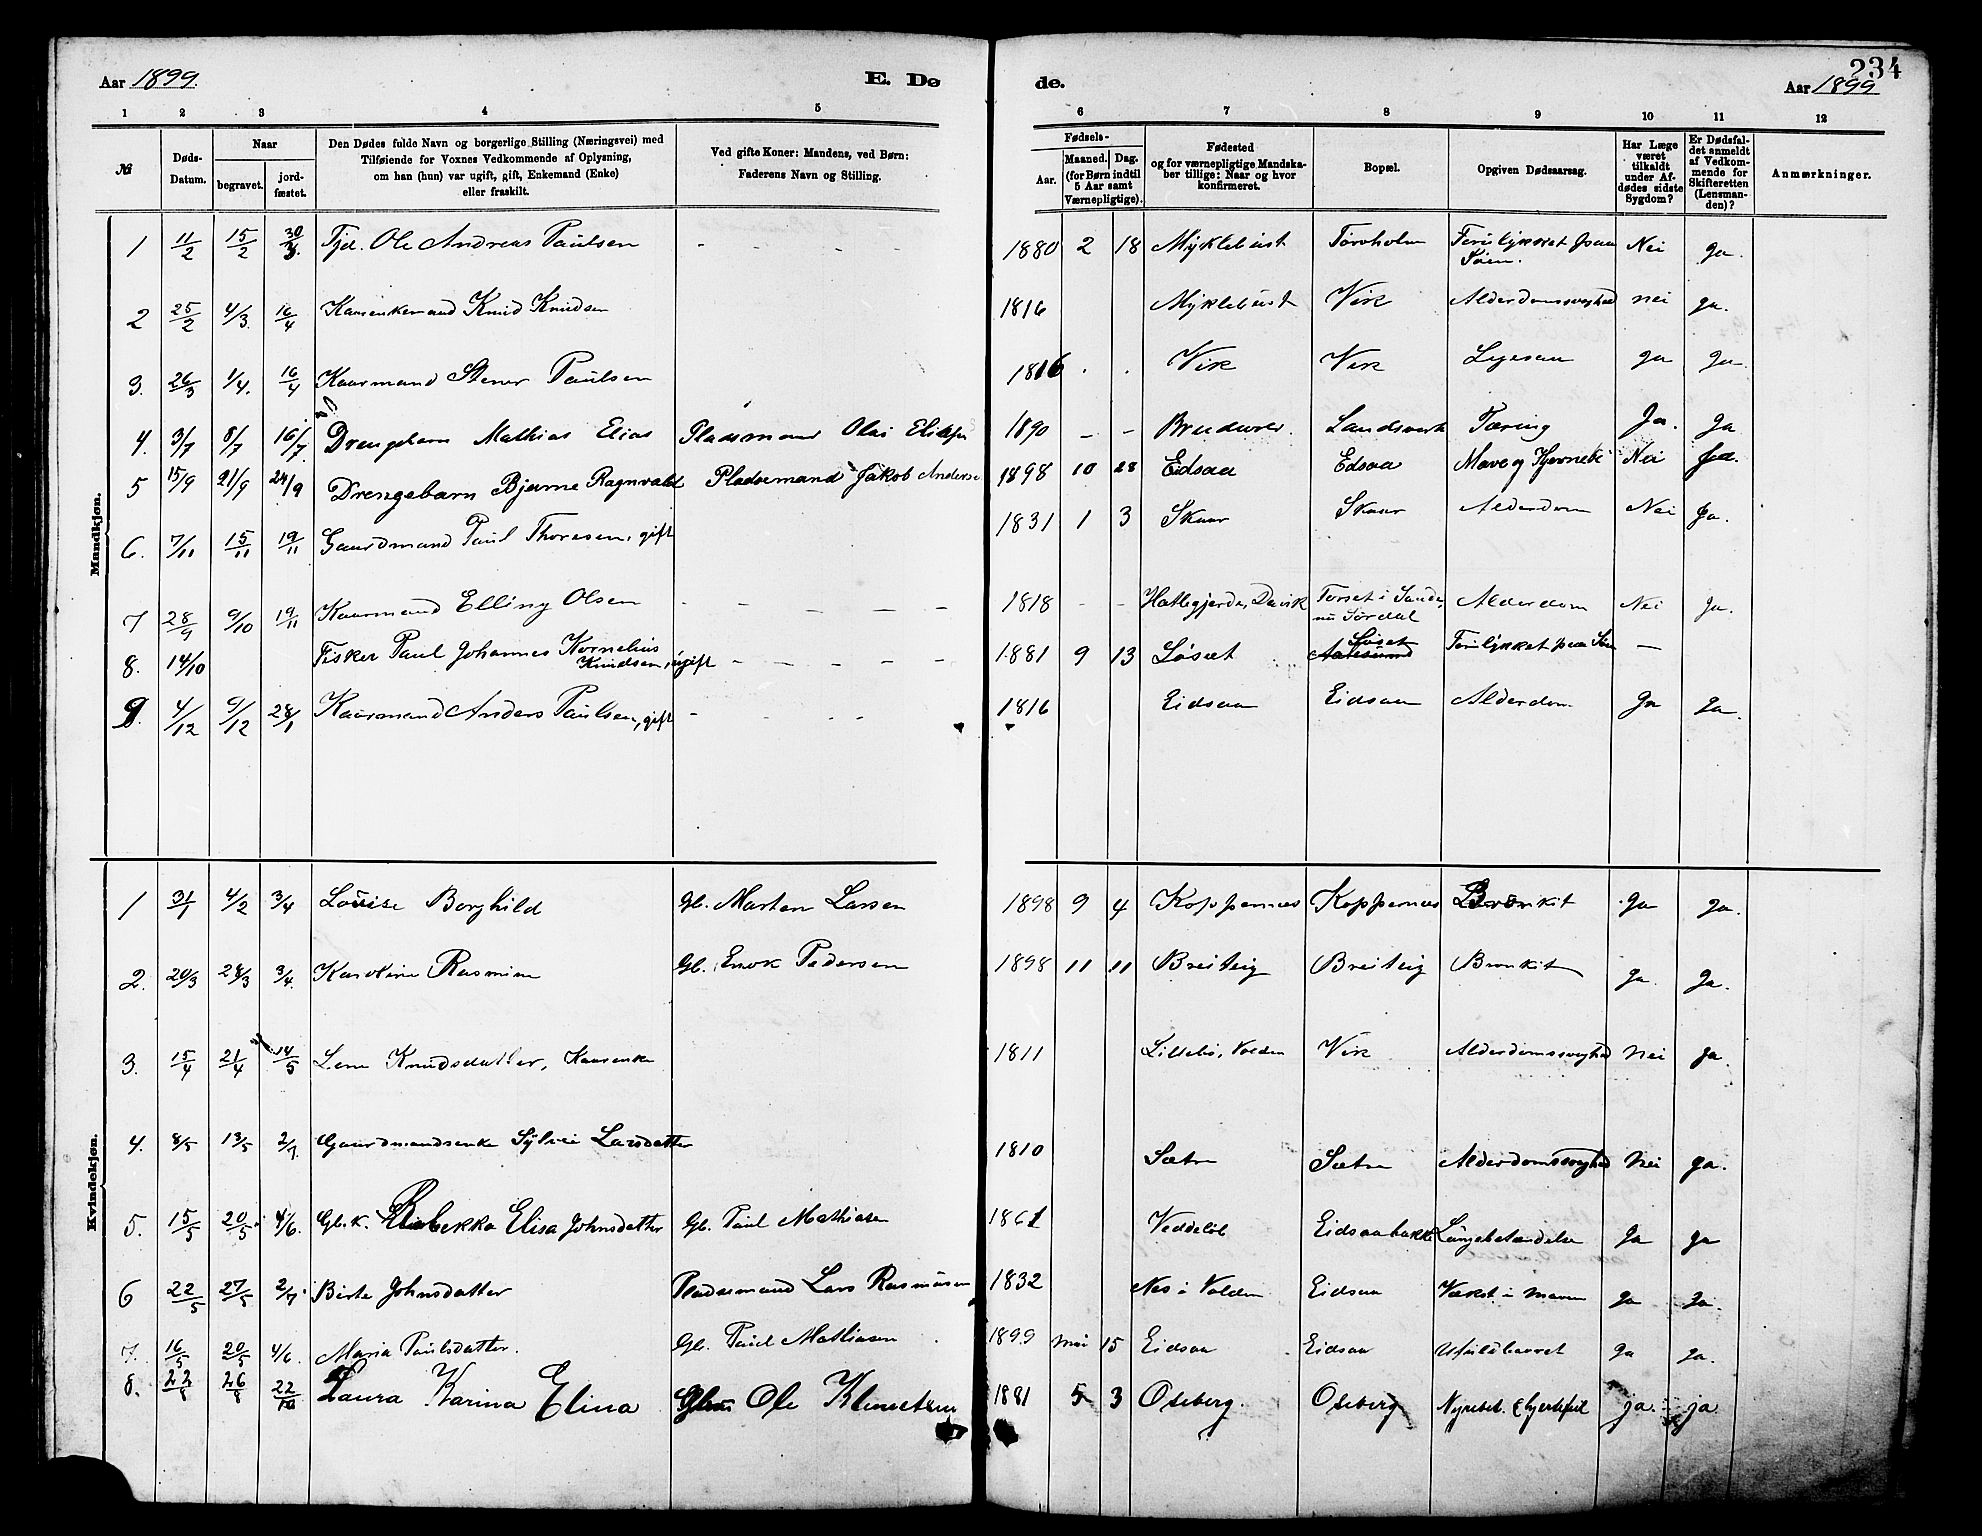 234
Aar 1899. E. Dø de. Aar 1899
1 2 3 4 5 6 7 8 9 10 11 12
№
Døds-Datum.
Naar
begravet.
jord-fæstet.
Den Dødes fulde Navn og borgerlige Stilling (Næringsvei) med
Tilføiende for Voxnes Vedkommende af Oplysning,
om han (hun) var ugift, gift, Enkemand (Enke)
eller fraskilt.
Ved gifte Koner: Mandens, ved Børn:
Faderens Navn og Stilling.
Fødsels-
Aar.
Maaned. Dag.
(for Børn indtil
5 Aar samt
Værnepligtige).
Fødested
og for værnepligtige Mandska-
ber tillige: Naar og hvor
konfirmeret.
Bopæl.
Opgiven Dødsaarsag.
Har Læge
været
tilkaldt
under Af-
dødes sidste
Sygdom?
Er Dødsfal-
det anmeldt
af Vedkom-
mende for
Skifteretten
(Lensman-
den)?
Anmærkninger.
Mandkjøn.
1 11/2 15/2 30/3. Tjd. Ole Andreas Paulsen - - - 1880 2 18 Myklebust Torvholm Forulykket paa Søen. Nei ja.
2 25/2 4/3. 16/4 Kaarenkemand Knud Knudsen 1816 Myklebust Vik Alderdomssvaghed nei ja.
3. 26/3 1/4. 16/4 Kaarmand Stener Paulsen 1816 . . Vik Vik ja ja
4. 3/7 8/7 16/7 Drengebarn Mathias Elias Pladsmand Olai 1890 - - Landsverk Tæring Ja. Ja
5 15/9 21/9 24/9 Drengebarn Bjarne Ragnvald Pladsemand Jakob Anderse 1898 10 28 Eidsaa Edsaa Mave og Nei Ja.
6. 7/11 15/11 19/11 Gaardmand Paul Thoresen, gift 1831 1 3 Skaar Skaar Alderdom Nei Ja.
7 28/9 9/10 19/11 Kaarmand Elling Olsen - - - - - 1818 - - Hatlegjerde, Davik Torset i Sande, nu Sørdal Alderdom Nei Ja.
8. 14/10 Fisker Paul Johannes Kornelius Knudsen, ugift - - - - - 1881 9 13 Løset Aalesund Løset Forulykket paa Søen —
9. 4/12 9/12 28/1 Kaarmand Anders Paulsen, gift - - - 1816 Eidsaa Eidsaa Alderdom Ja Ja.
Kvindekjøn.
1 31/1 4/2 3/4 Louise Borghild Gb. Marten Larsen 1898 9 4 Koppernæs Koppernæs Bronkit Ja Ja.
2. 20/3 28/3 3/4. Karoline Rasmine Gb. Enok Pedersen 1898 11 11 Breiteig Breiteig Bronkit Ja. Ja.
3. 15/4 21/4 14/5 Lene Knudsdatter, Kaarenke 1811 Lillebø, Volden Vik Alderdomssvaghed Nei Ja.
4. 8/5 13/5 2/7. Gaardmandsenke Sylvie Larsdatter 1810 Sætre Sætre Alderdomssvaghed Nei ja.
5. 15/5 20/5. 4/6. Gb.k. Rebekka Elisa Johnsdatter Gb. Paul Mathiasen 1861 Eidsaabakke Lungebetændelse Ja Ja
6 22/5 27/5 2/7. Birte Johnsdatter Pladsemand Lars Rasmusen 1832 Nes i Volden Eidsaa Vækst i maven Ja Ja.
7. 16/5 20/5 4/6. Maria Paulsdatter. Gb. Paul Mathiasen 1899 mai 15 Eidsaa Eidsaa Ufuldbaaret Ja Ja.
8. 22/8 26/8 22/10 Laura Karina Elina Ole Klemetsen 1881 5 3 Oseberg. Oseberg Nyrebet. & hjertefeil ja. ja.